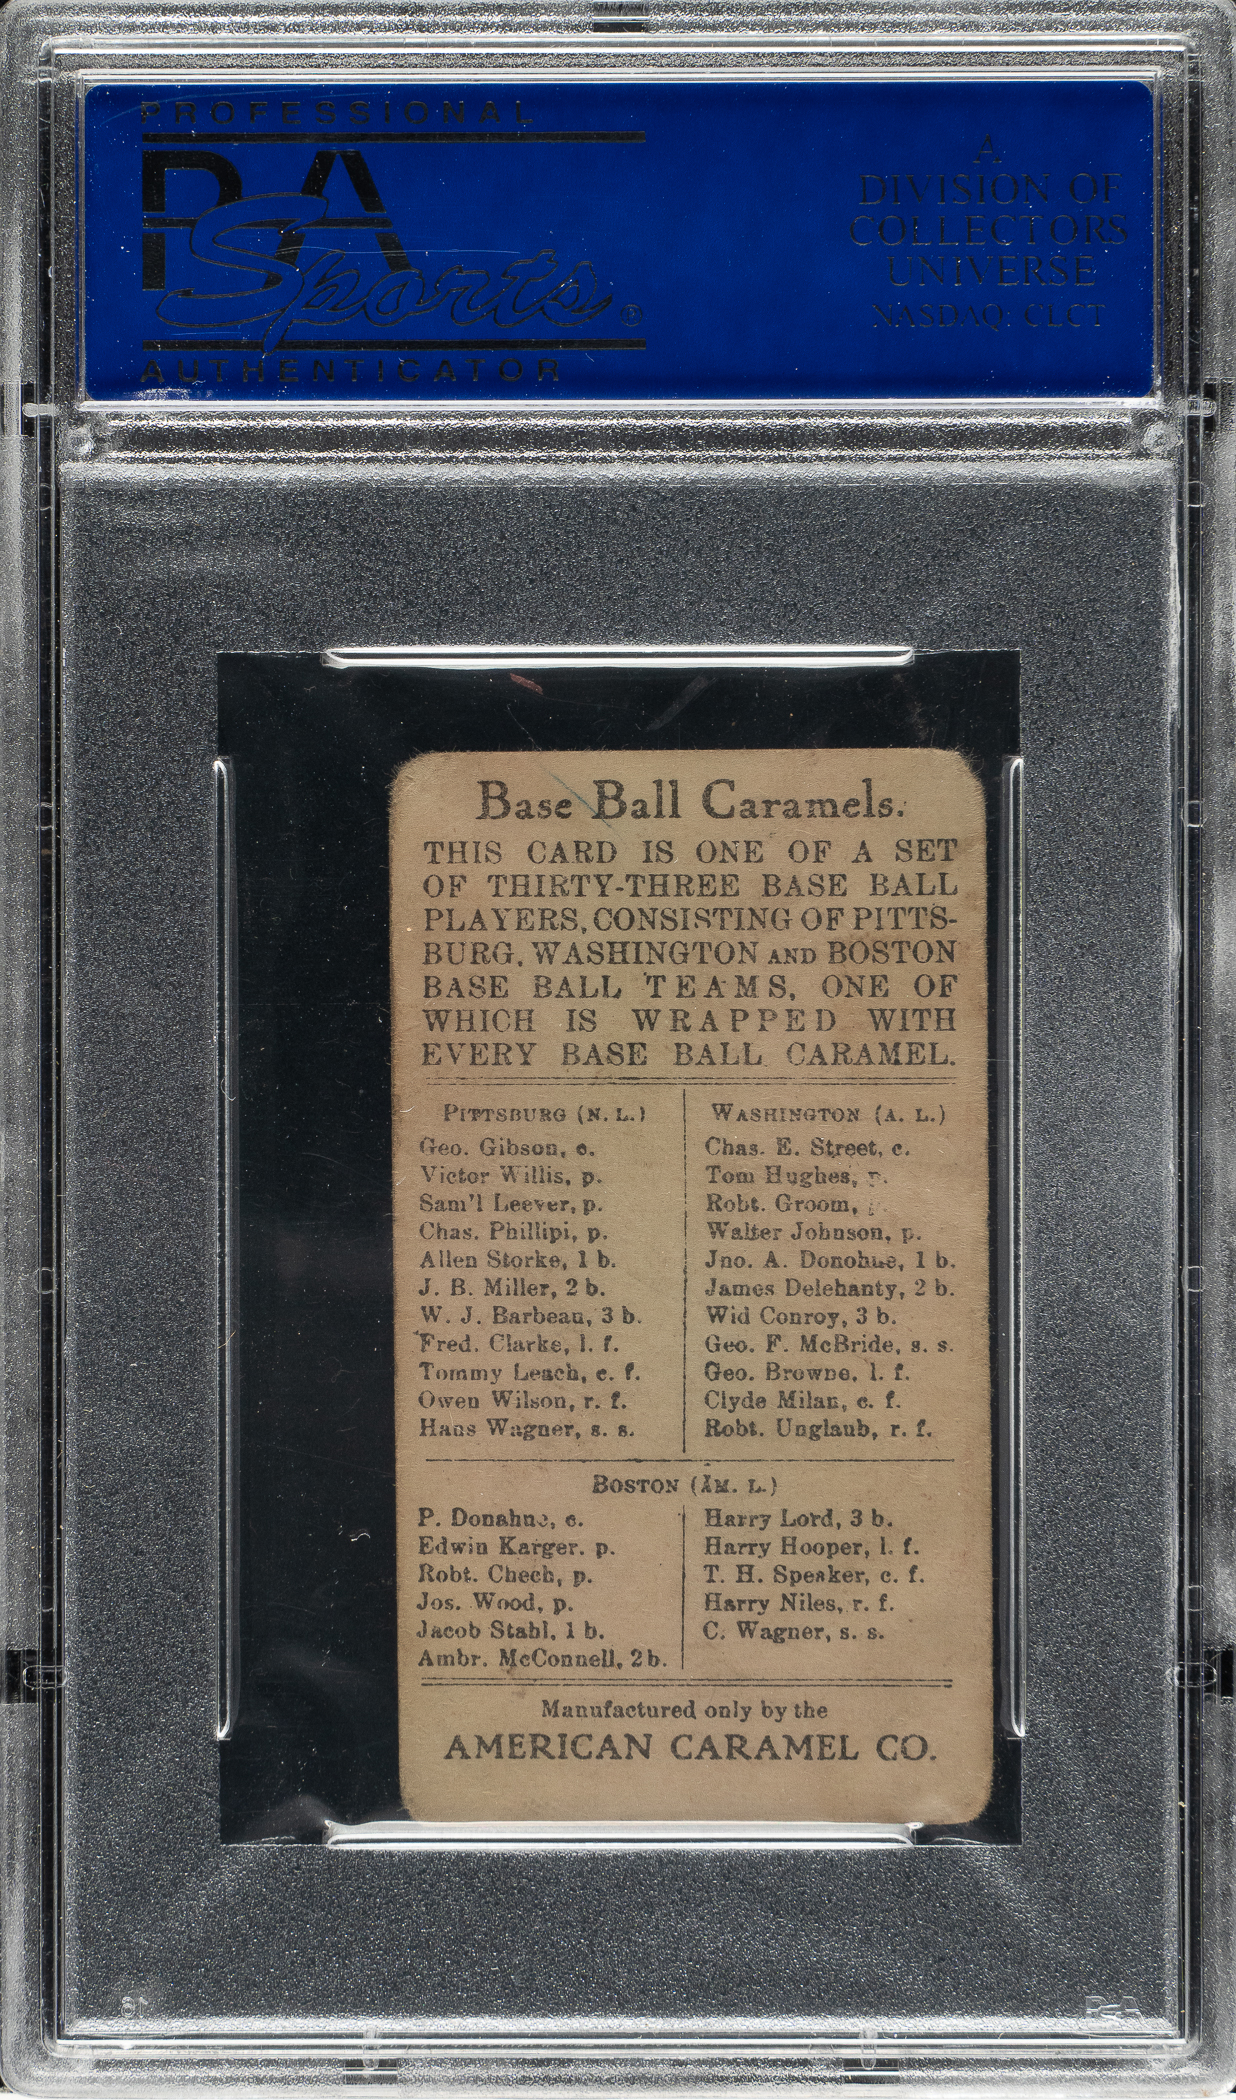 PROFESSIONAL
PSA
Sports®
AUTHENTICATOR
A
DIVISION OF
COLLECTORS
UNIVERSE
NASDAQ: CLCT
Base Ball Caramels.
THIS CARD IS ONE OF A SET
OF THIRTY-THREE BASE BALL
PLAYERS, CONSISTING OF PITTS-
BURG, WASHINGTON AND BOSTON
BASE BALL TEAMS, ONE OF
WHICH IS WRAPPED WITH
EVERY BASE BALL CARAMEL.
PITTSBURG (N. L.)
Geo. Gibson, c.
Victor Willis, p.
Sam'l Leever, p.
Chas. Phillipi, p.
Allen Storke, 1 b.
J. B. Miller, 2 b.
W. J. Barbeau, 3 b.
Fred. Clarke, l. f.
Tommy Leach, c. f.
Owen Wilson, r. f.
Hans Wagner, s. s.
WASHINGTON (A. L.)
Chas. E. Street, c.
Tom Hughes, p.
Robt. Groom,
Walter Johnson, p.
Jno. A. Donohue, 1 b.
James Delehanty, 2 b.
Wid Conroy, 3 b.
Geo. F. McBride, s. s.
Geo. Browne, l. f.
Clyde Milan, c. f.
Robt. Unglaub, r. f.
BOSTON (AM. L.)
P. Donahue, c.
Edwin Karger. p.
Robt. Chech, p.
Jos. Wood, p.
Jacob Stahl, 1 b.
Ambr. McConnell, 2 b.
Harry Lord, 3 b.
Harry Hooper, l. f.
T. H. Speaker, c. f.
Harry Niles, r. f.
C. Wagner, s. s.
Manufactured only by the
AMERICAN CARAMEL CO.
PSA